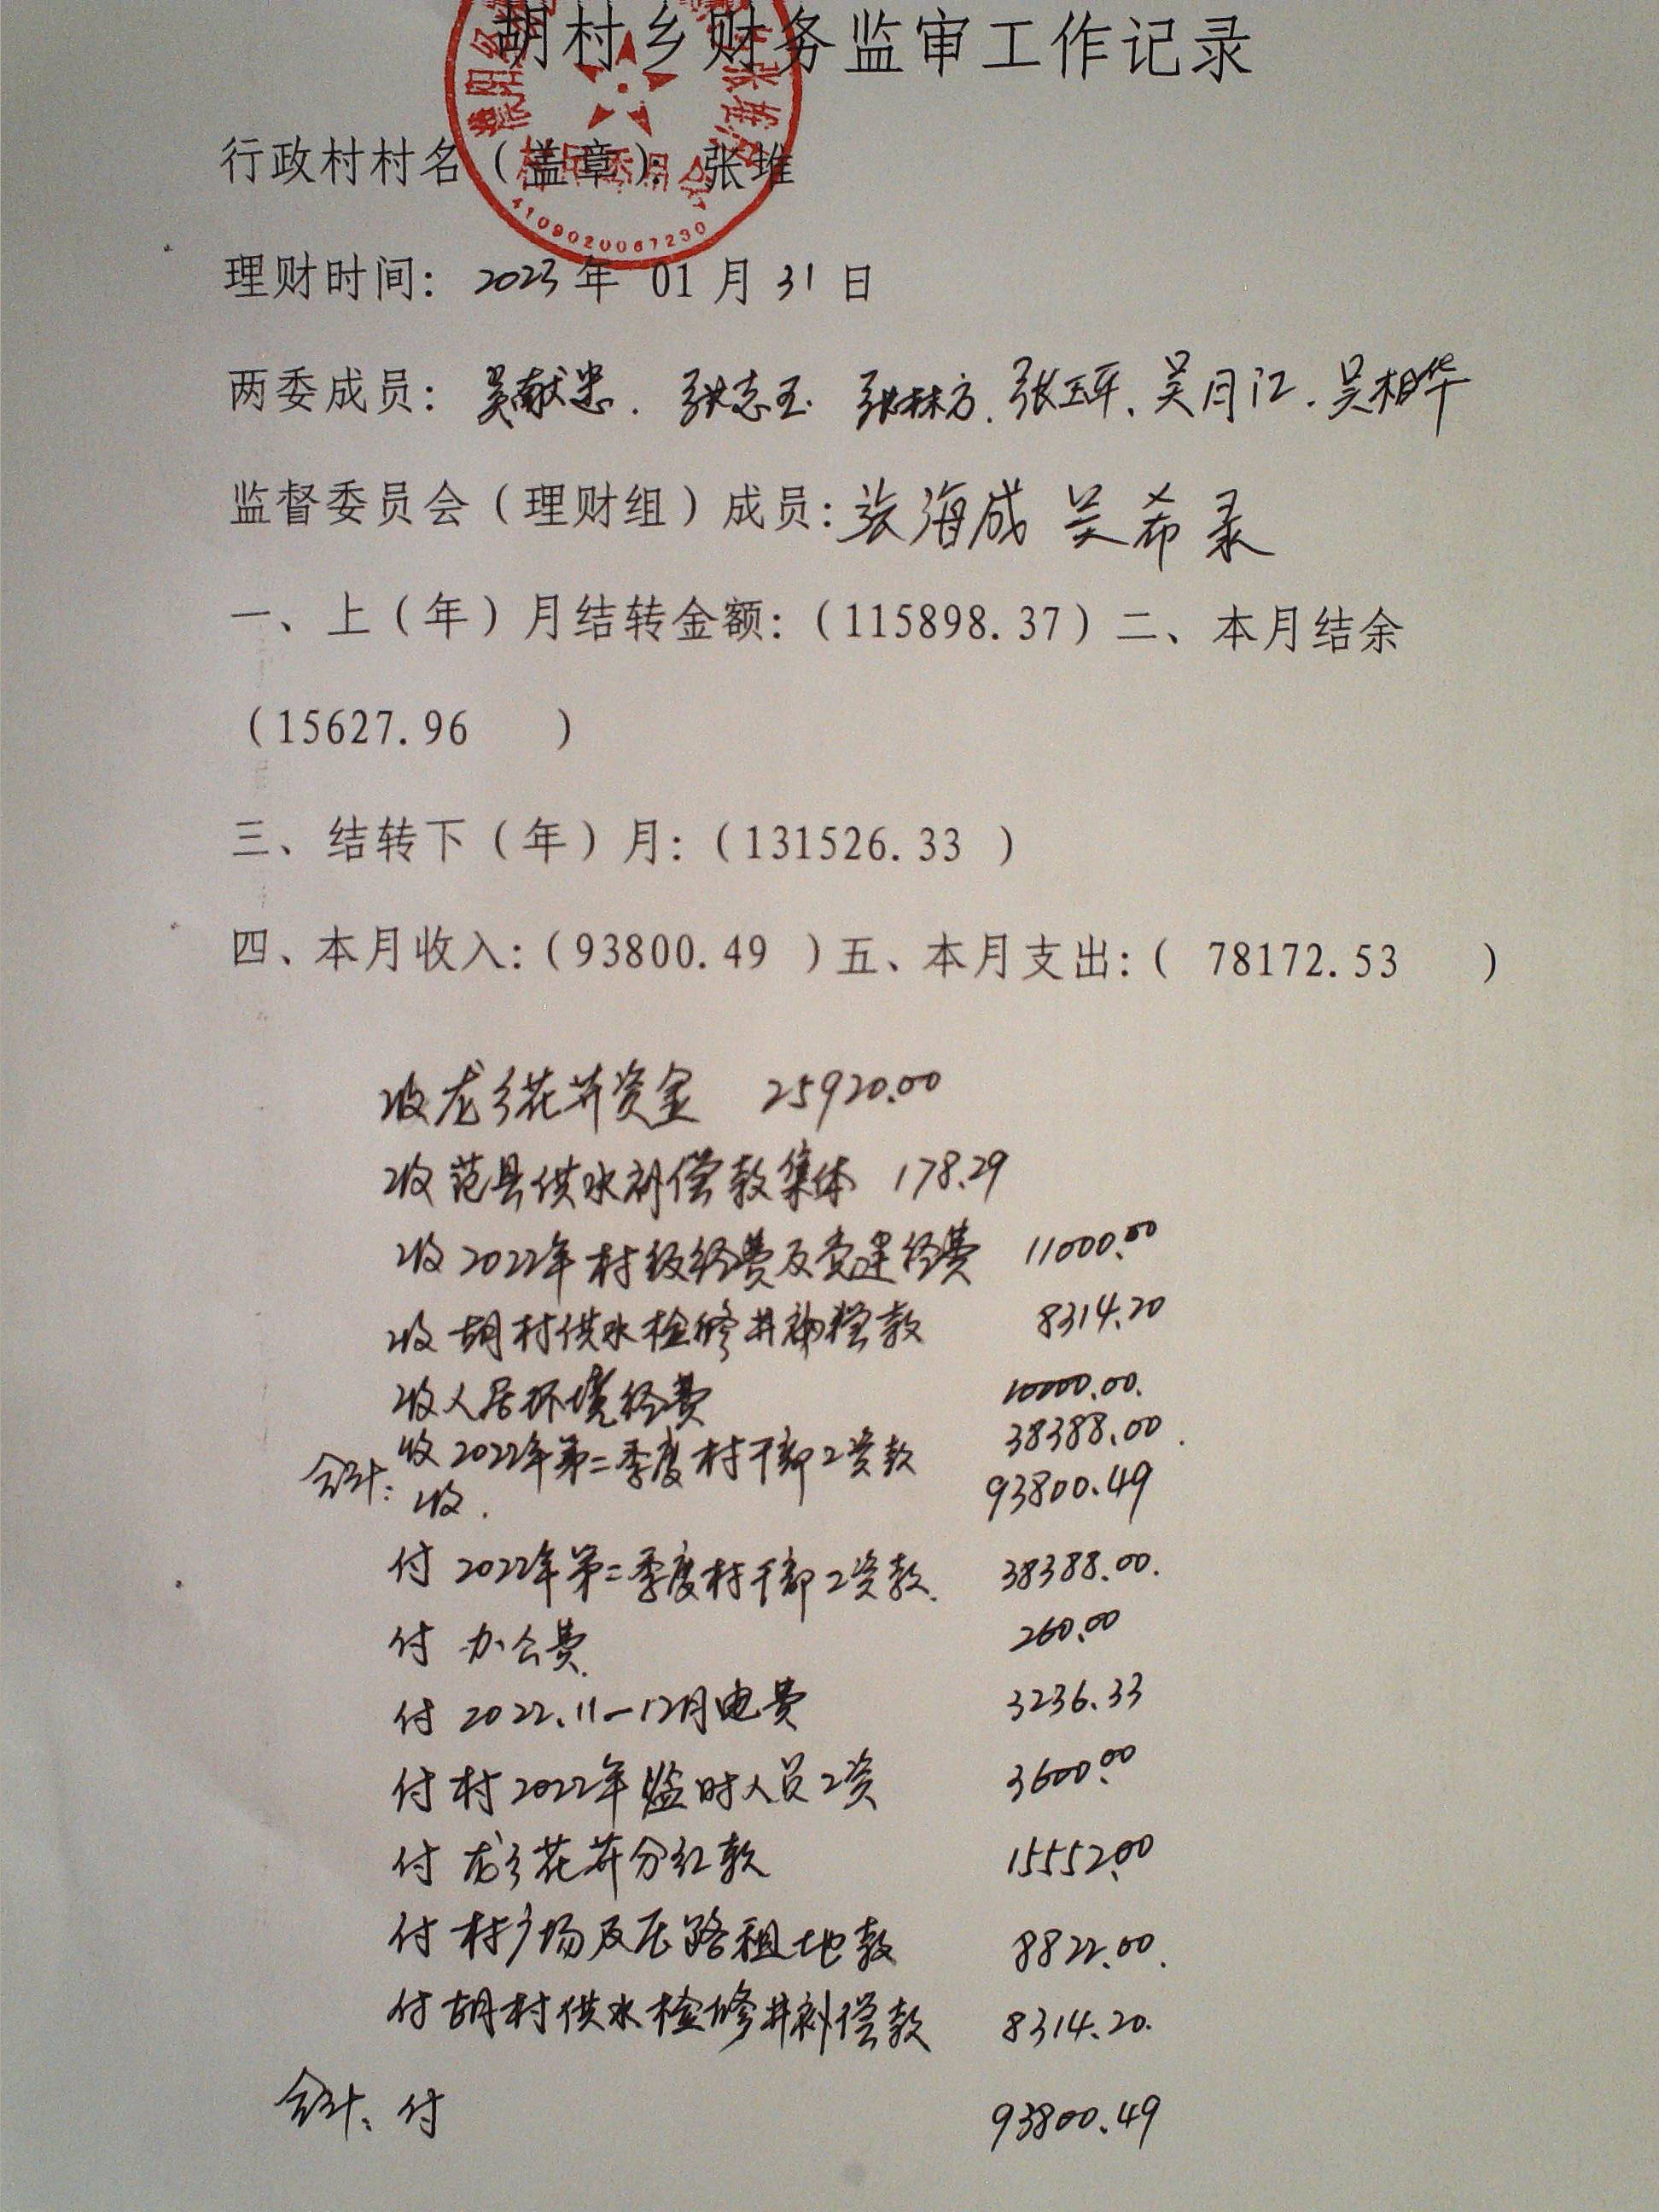 胡村乡财务监审工作记录
行政村村名（盖章）：张堆
4109020067230
理财时间：2023年 01月31日
两委成员：吴献忠．张志玉．张林方．张玉军、吴月江．吴相华
监督委员会（理财组）成员：张海成 吴希录
一、上（年）月结转金额：（115898.37）二、本月结余
（15627.96 ）
三、结转下（年）月：（131526.33 ）
四、本月收入：（93800.49 ）五、本月支出：（ 78172.53 ）
收龙乡花卉资金 25920.00
收范县供水补偿款集体 178.29
收2022年村级经费及党建经费 11000.00
收胡村供水检修井补偿款 8314.20
收人居环境经费 10000.00.
收2022年第二季度村干部工资款 38388.00.
合计：收. 93800.49
付2022年第二季度村干部工资款. 38388.00.
付 办公费. 260.00
付 2022.11—12月电费 3236.33
付村2022年临时人员工资 3600.00
付龙乡花卉分红款 15552.00
付村广场及 路租地款 8822.00.
付胡村供水检修井补偿款 8314.20.
合计：付 93800.49